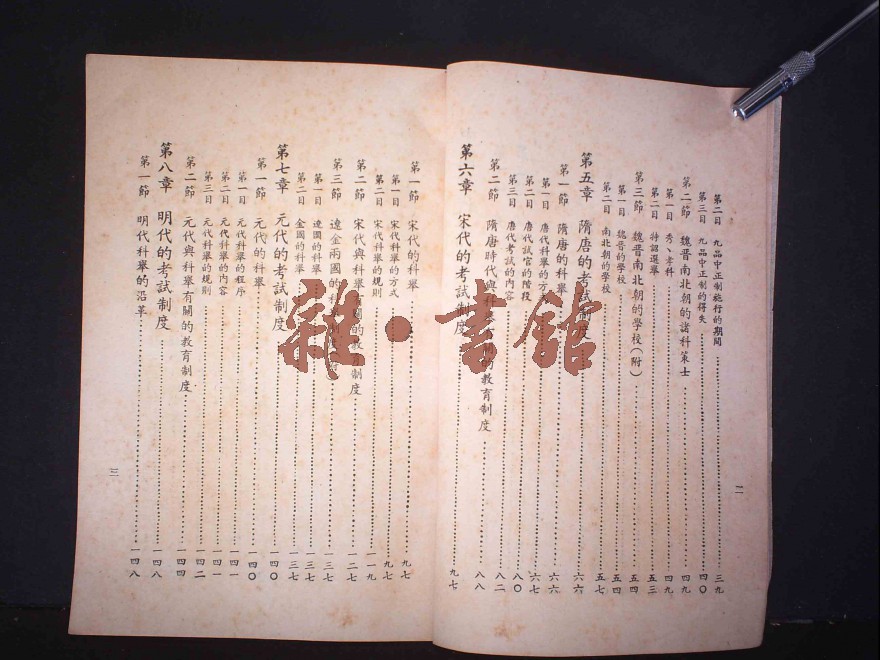 第二目 九品中正制施行的期間 三九
第三目 九品中正制的得失 四〇
第二節 魏晉南北朝的諸科策士 四九
第一目 秀、孝科 四九
第二目 特詔選舉 五三
第三節 魏晉南北朝的學校(附) 五四
第一目 魏晉的學校 五四
第二目 南北朝的學校 五七
第五章 隋唐的考試制度 六六
第一節 隋唐的科舉 六六
第一目 唐代科舉的方式 六七
第二目 唐代試官的階段 八〇
第三目 唐代考試的內容 八二
第二節 隋唐時代與科舉有關的教育制度 八八
第六章 宋代的考試制度 九七
二
第一節 宋代的科舉 九七
第一目 宋代科舉的方式 九七
第二目 宋代科舉的規則 一一九
第二節 宋代與科舉有關的教育制度 一二七
第三節 遼金兩國的科 一三七
第一目 遼國的科舉 一三七
第二目 金國的科舉 一三七
第七章 元代的考試制度 一四〇
第一節 元代的科舉 一四〇
第一目 元代科舉的程序 一四一
第二目 元代科舉的內容 一四一
第三目 元代科舉的規則 一四二
第二節 元代與科舉有關的教育制度 一四四
第八章 明代的考試制度 一四八
第一節 明代科舉的沿革 一四八
三
雜·書館